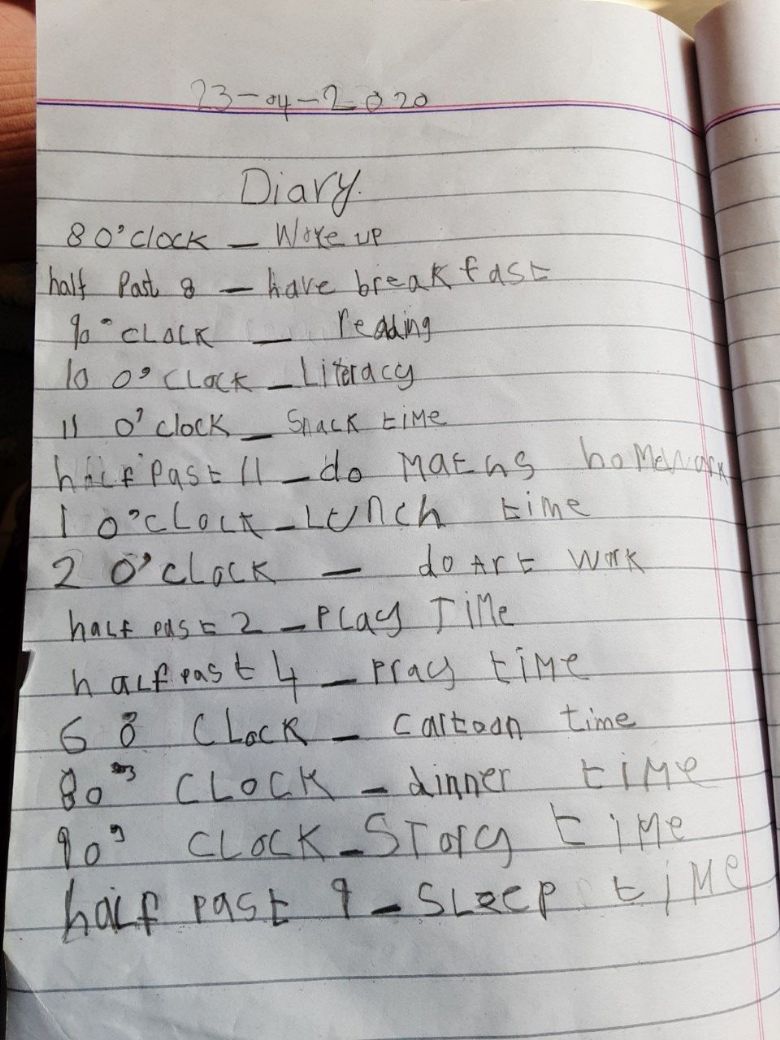 23-04-2020
Diary.
8 O'clock - Woke up
half Past 8 - have breakfast
9 o'clock - reading
10 O'clock - Literacy
11 O'clock - Snack time
half Past 11 - do Maths homework
1 O'clock - Lunch time
2 O'clock - do Art work
half past 2 - Play Time
half past 4 - Pray time
6 O Clock - Cartoon time
8 o' CLOCK - dinner time
9 o' CLOCK - Story time
half past 9 - Sleep time